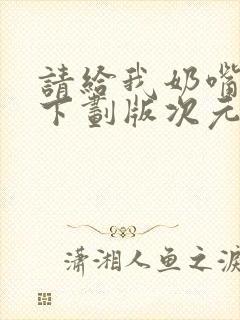 請給我奶嘴
下劃版次元
瀟湘人鱼之淚